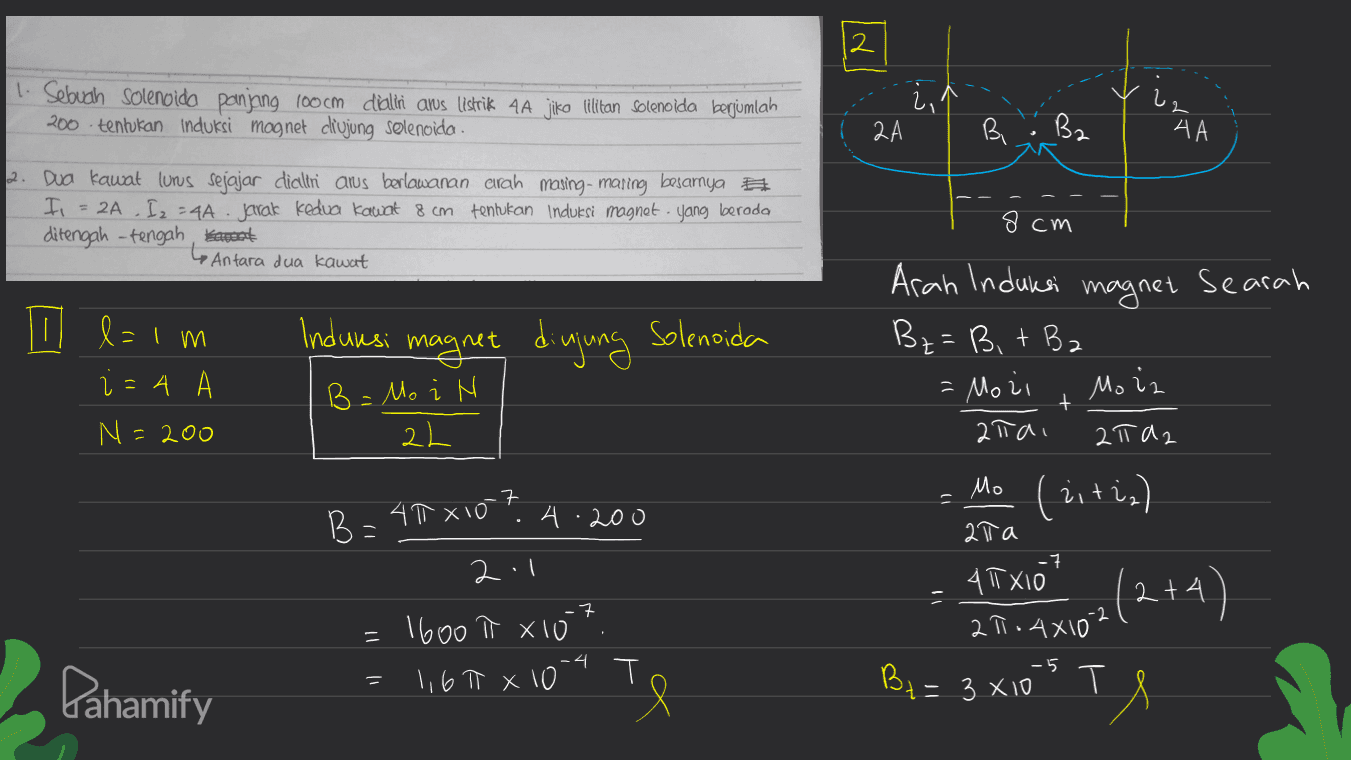 1. Sebuah Solenoida panjang 100 cm dialiri arus listrik 4A jika lilitan solenoida berjumlah
200 . tentukan Induksi magnet diujung solenoida .
2. Dua kawat lurus sejajar dialiri arus berlawanan arah masing-masing besarnya
I₁ = 2A . I₂ = 4A . jarak kedua kawat 8 cm tentukan Induksi magnet . yang berada
ditengah - tengah
↳ Antara dua kawat
1
l = 1 m
i = 4 A
N = 200
Induksi magnet diujung Solenoida
B = μ₀ i N / 2L
B = 4π x 10⁻⁷ . 4 . 200 / 2 . 1
= 1600 π x 10⁻⁷ .
= 1,6 π x 10⁻⁴ T
2
i₁ i₂
2A B₁ . B₂ 4A
8 cm
Arah Induksi magnet Searah
Bt = B₁ + B₂
= μ₀ i₁ / 2πa₁ + μ₀ i₂ / 2πa₂
= μ₀ / 2πa (i₁ + i₂)
= 4π x 10⁻⁷ / 2π . 4 x 10⁻² (2 + 4)
Bt = 3 x 10⁻⁵ T
Pahamify